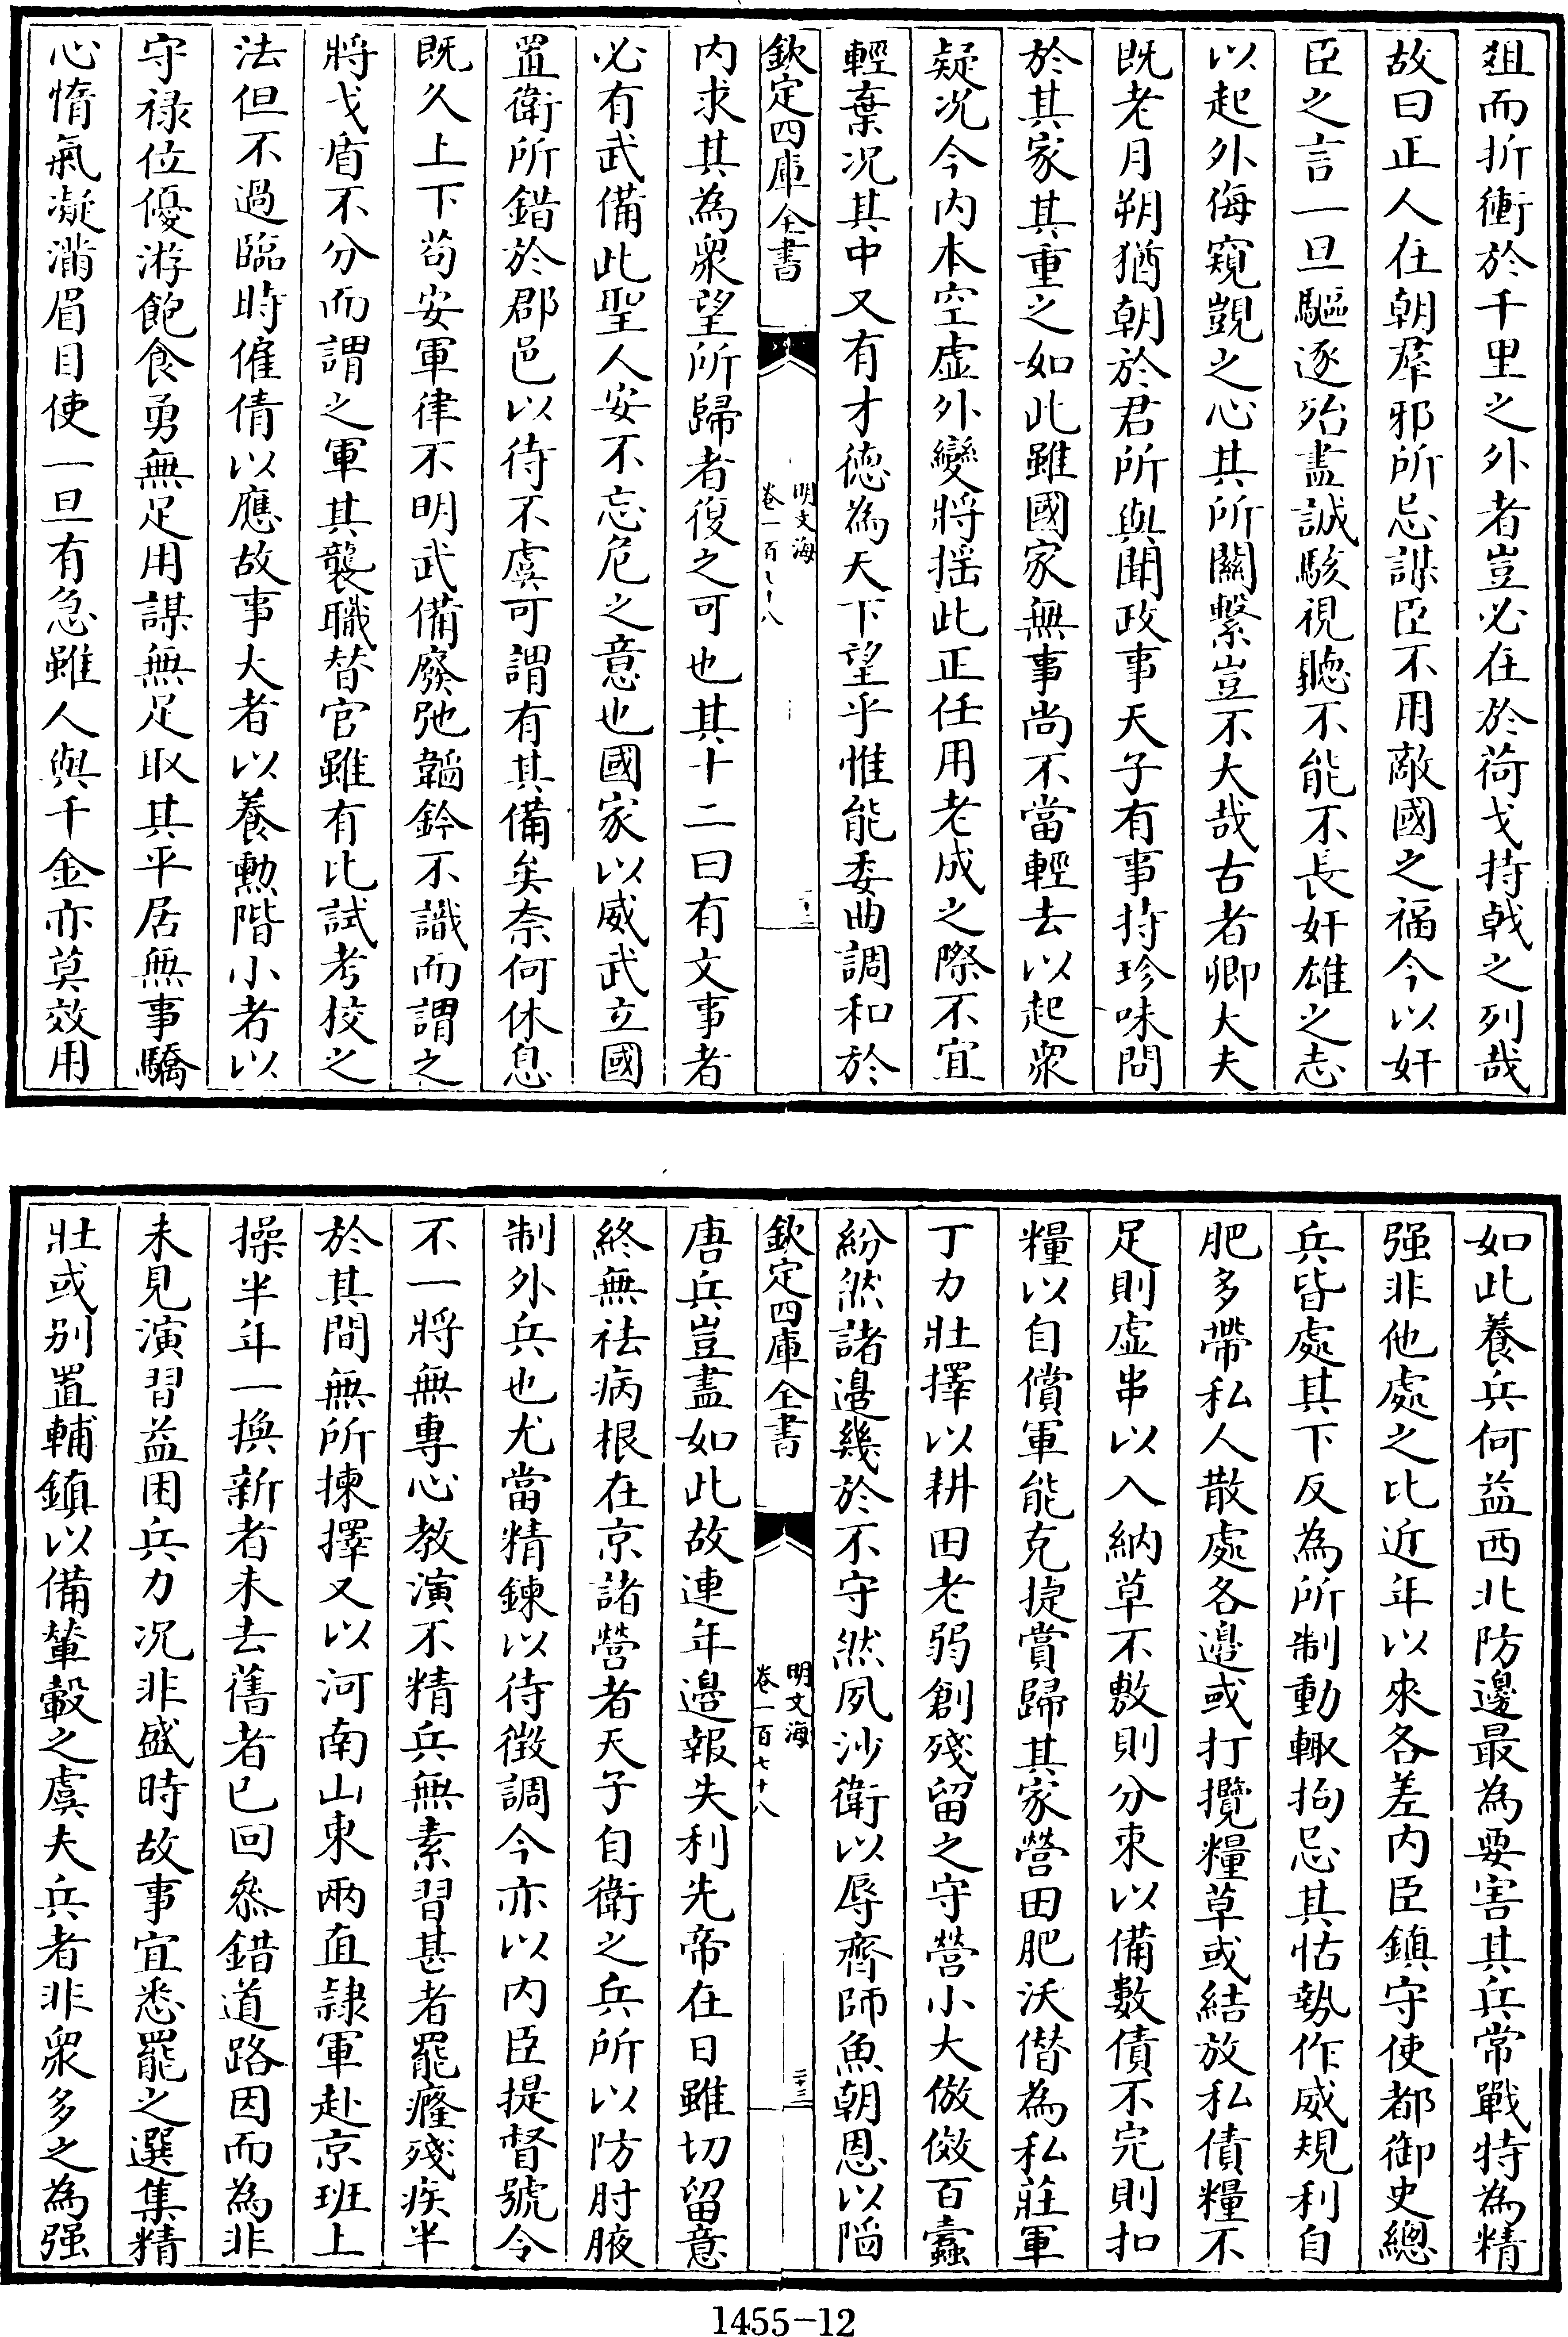 爼而折衝於千里之外者豈必在於荷戈持戟之列哉
故曰正人在朝羣邪所忌謀臣不用敵國之福今以奸
臣之言一旦驅逐殆盡誠駭視聽不能不長奸雄之志
以起外侮窺覬之心其所關繫豈不大哉古者卿大夫
既老月朔猶朝於君所與聞政事天子有事持珍味問
於其家其重之如此雖國家無事尚不當輕去以起衆
疑况今内本空虚外變將揺此正任用老成之際不宜
輕棄况其中又有才德為天下望乎惟能委曲調和於
欽定四庫全書
明文海
卷一百七十八
二十二
内求其為衆望所歸者復之可也其十二曰有文事者
必有武備此聖人安不忘危之意也國家以威武立國
置衛所錯於郡邑以待不虞可謂有其備矣奈何休息
既久上下苟安軍律不明武備廢弛韜鈐不識而謂之
將戈盾不分而謂之軍其襲職替官雖有比試考校之
法但不過臨時僱倩以應故事大者以養勲階小者以
守禄位優游飽食勇無足用謀無足取其平居無事驕
心惰氣凝滿眉目使一旦有急雖人與千金亦莫效用
如此養兵何益西北防邊最為要害其兵常戰特為精
强非他處之比近年以來各差内臣鎮守使都御史總
兵皆處其下反為所制動輙拘忌其怙勢作威規利自
肥多帶私人散處各邉或打攬糧草或結放私債糧不
足則虚串以入納草不敷則分束以備數債不完則扣
糧以自償軍能克捷賞歸其家營田肥沃僣為私莊軍
丁力壯擇以耕田老弱創殘留之守營小大倣傚百蠧
紛然諸邉幾於不守然夙沙衛以辱齊師魚朝恩以陷
欽定四庫全書
明文海
卷一百七十八
二十三
唐兵豈盡如此故連年邉報失利先帝在日雖切留意
終無袪病根在京諸營者天子自衛之兵所以防肘腋
制外兵也尤當精鍊以待徴調今亦以内臣提督號令
不一將無專心教演不精兵無素習甚者罷癃殘疾半
於其間無所揀擇又以河南山東兩直隷軍赴京班上
操半年一换新者未去舊者已回叅錯道路因而為非
未見演習益困兵力况非盛時故事宜悉罷之選集精
壯或别置輔鎮以備輦轂之虞夫兵者非衆多之為强
1455-12